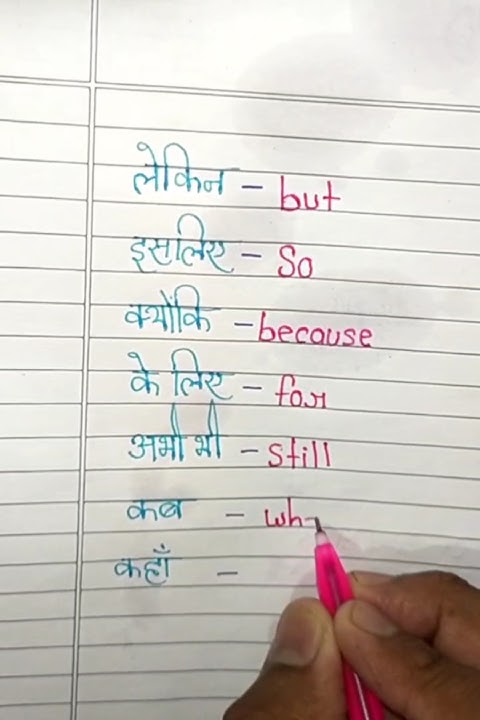 लेकिन - but
इसलिए - So
क्योंकि - because
के लिए - for
अभी भी - still
कब - wh
कहाँ -